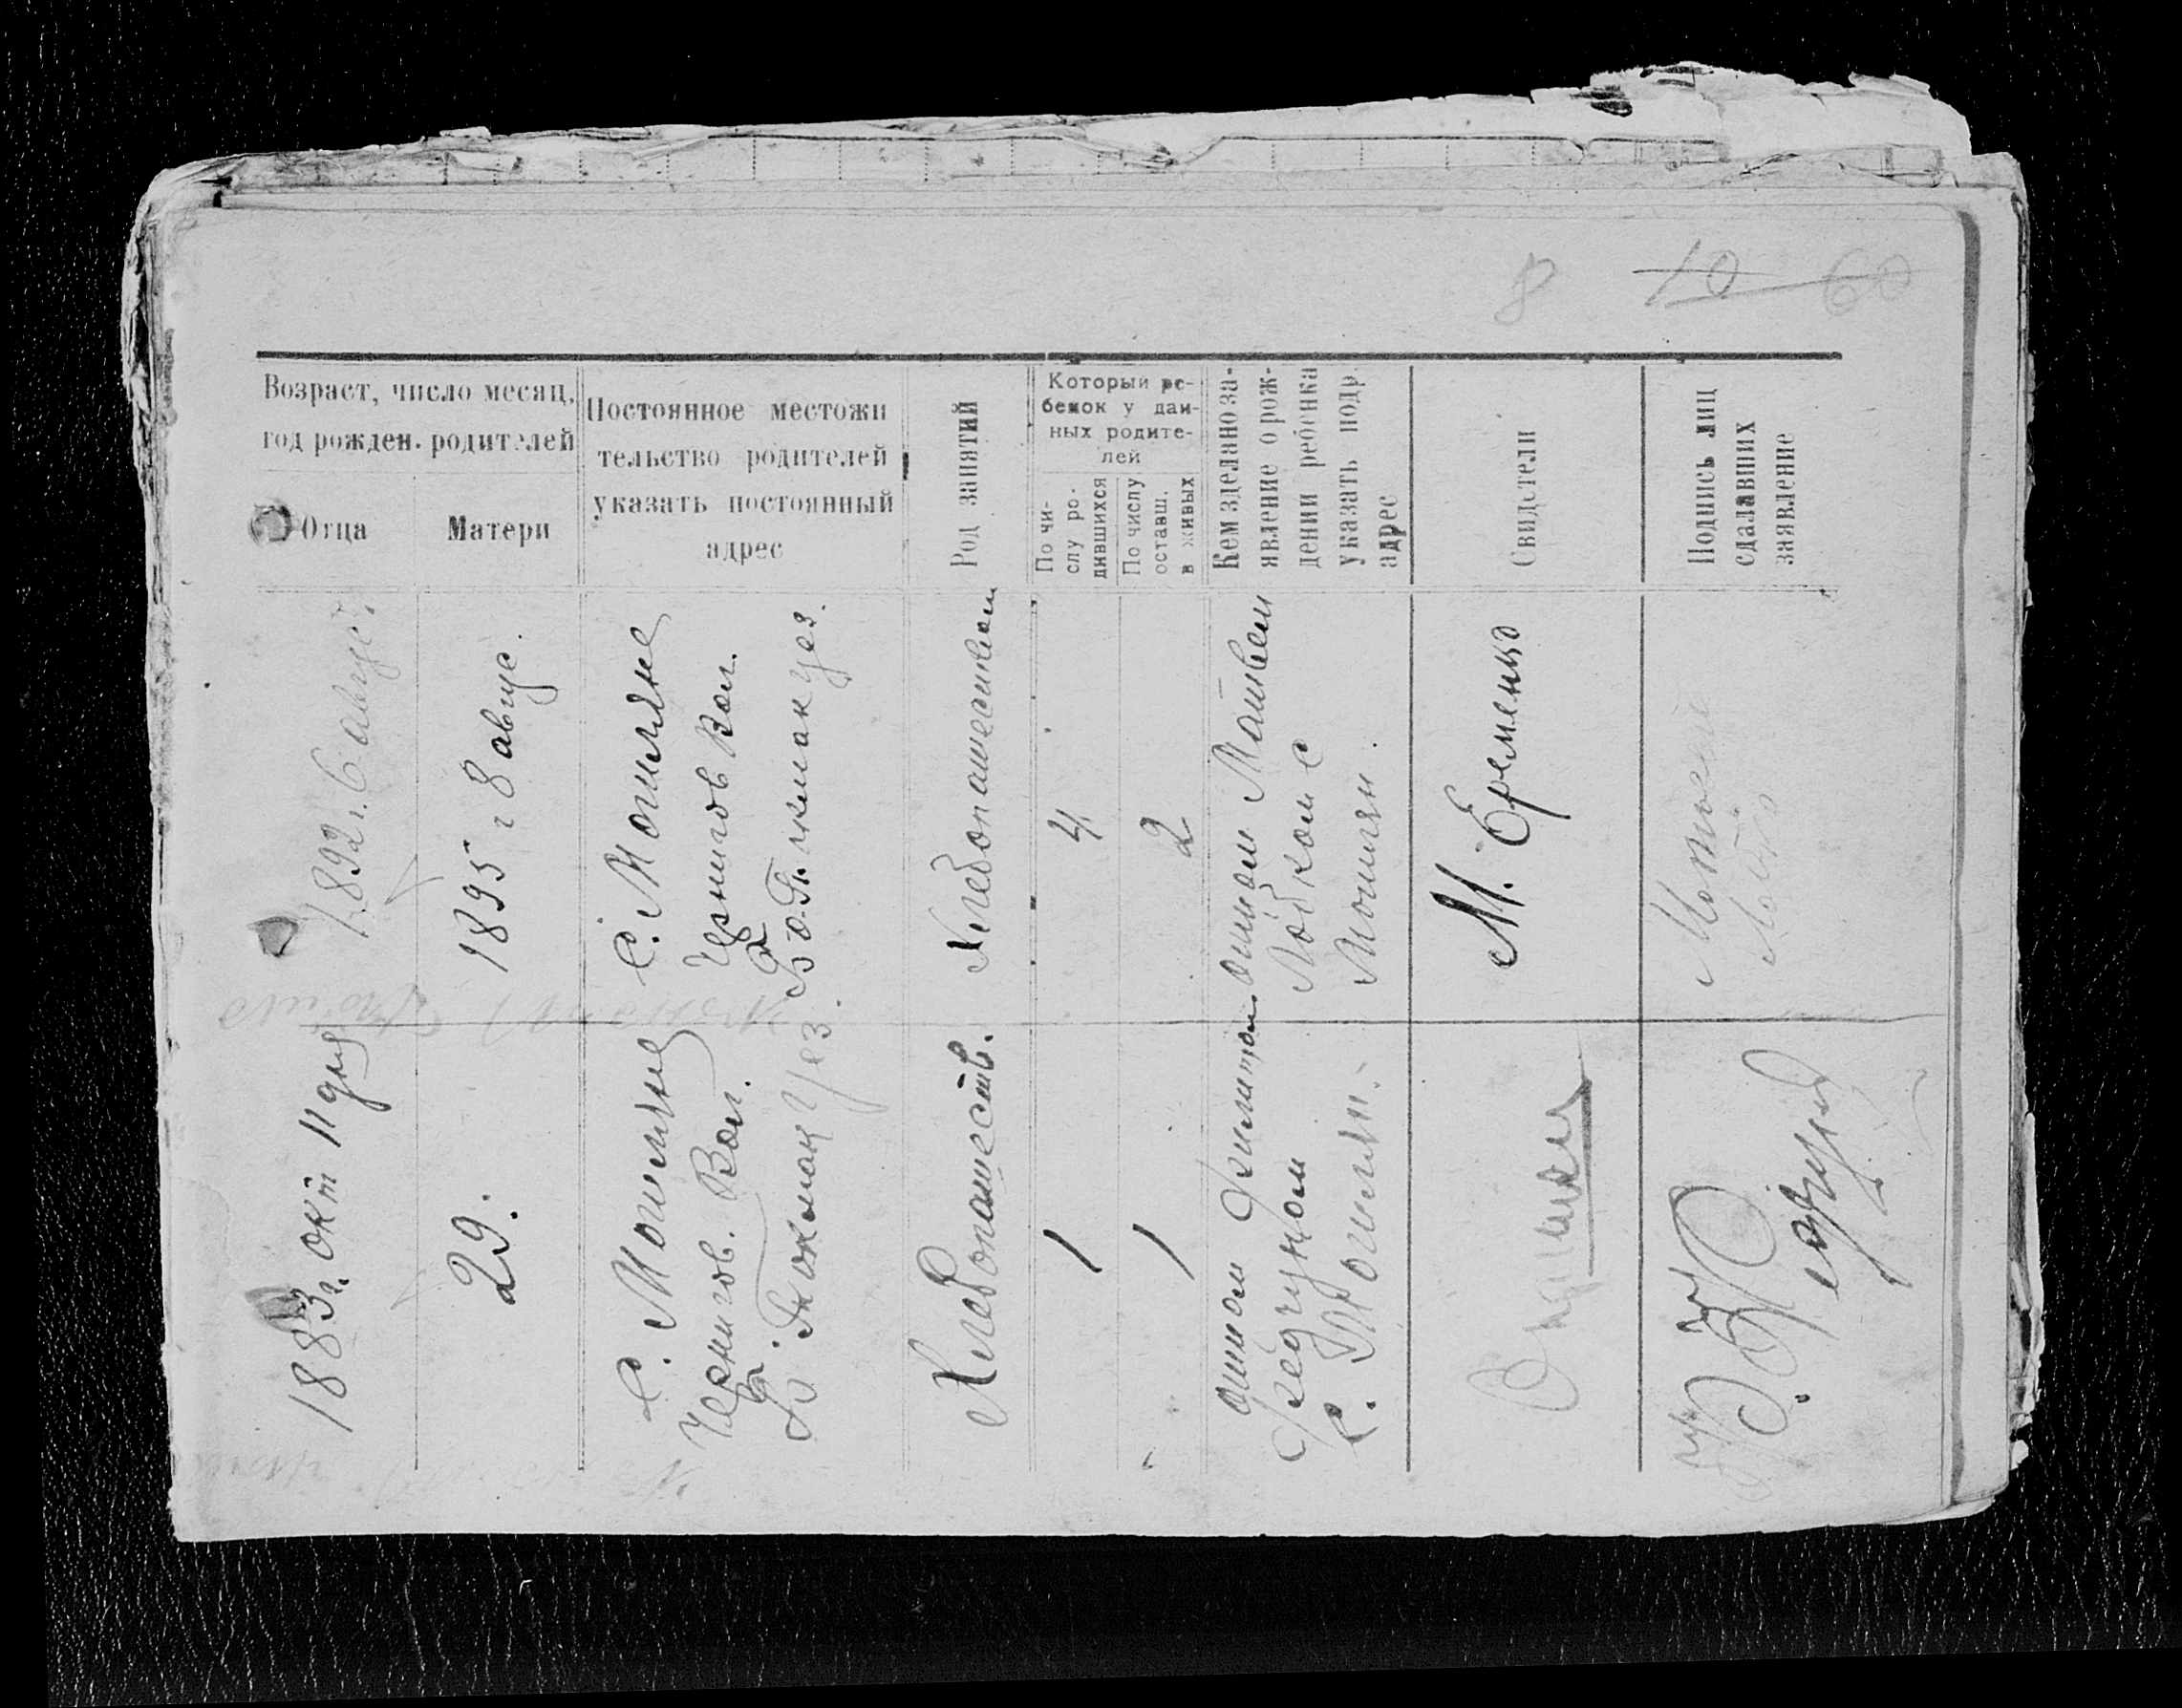 8 10 60
Возраст, число месяц,
год рожден. родителей
Отца
Матери
Постоянное местожи
тельство родителей
указать постоянный
адрес
Род занятий
Который ре-
бенок у дан-
ных родите-
лей
По чи-
слу ро-
дившихся
По числу
оставш.
в живых
Кем зделано за-
явление о рож-
дении ребенка
указать подр.
адрес
Свидетели
Подпись лиц
сдалавших
заявление
1892 г. 6 август
1895 г 8 авгус.
С. Могиляне
Чернигов Вол.
Б. Токмак уез.
Хлебопашеством
4
2
отцом Матвеем
Лобком с
Могилян.
М. Еременко
1883 г. окт 11 дня
29.
С. Могиляне
Чернигов. Вол.
Б. Токмак Уез.
Хлебопашеств.
1
1
отцом Филиппом
с. Могилян.